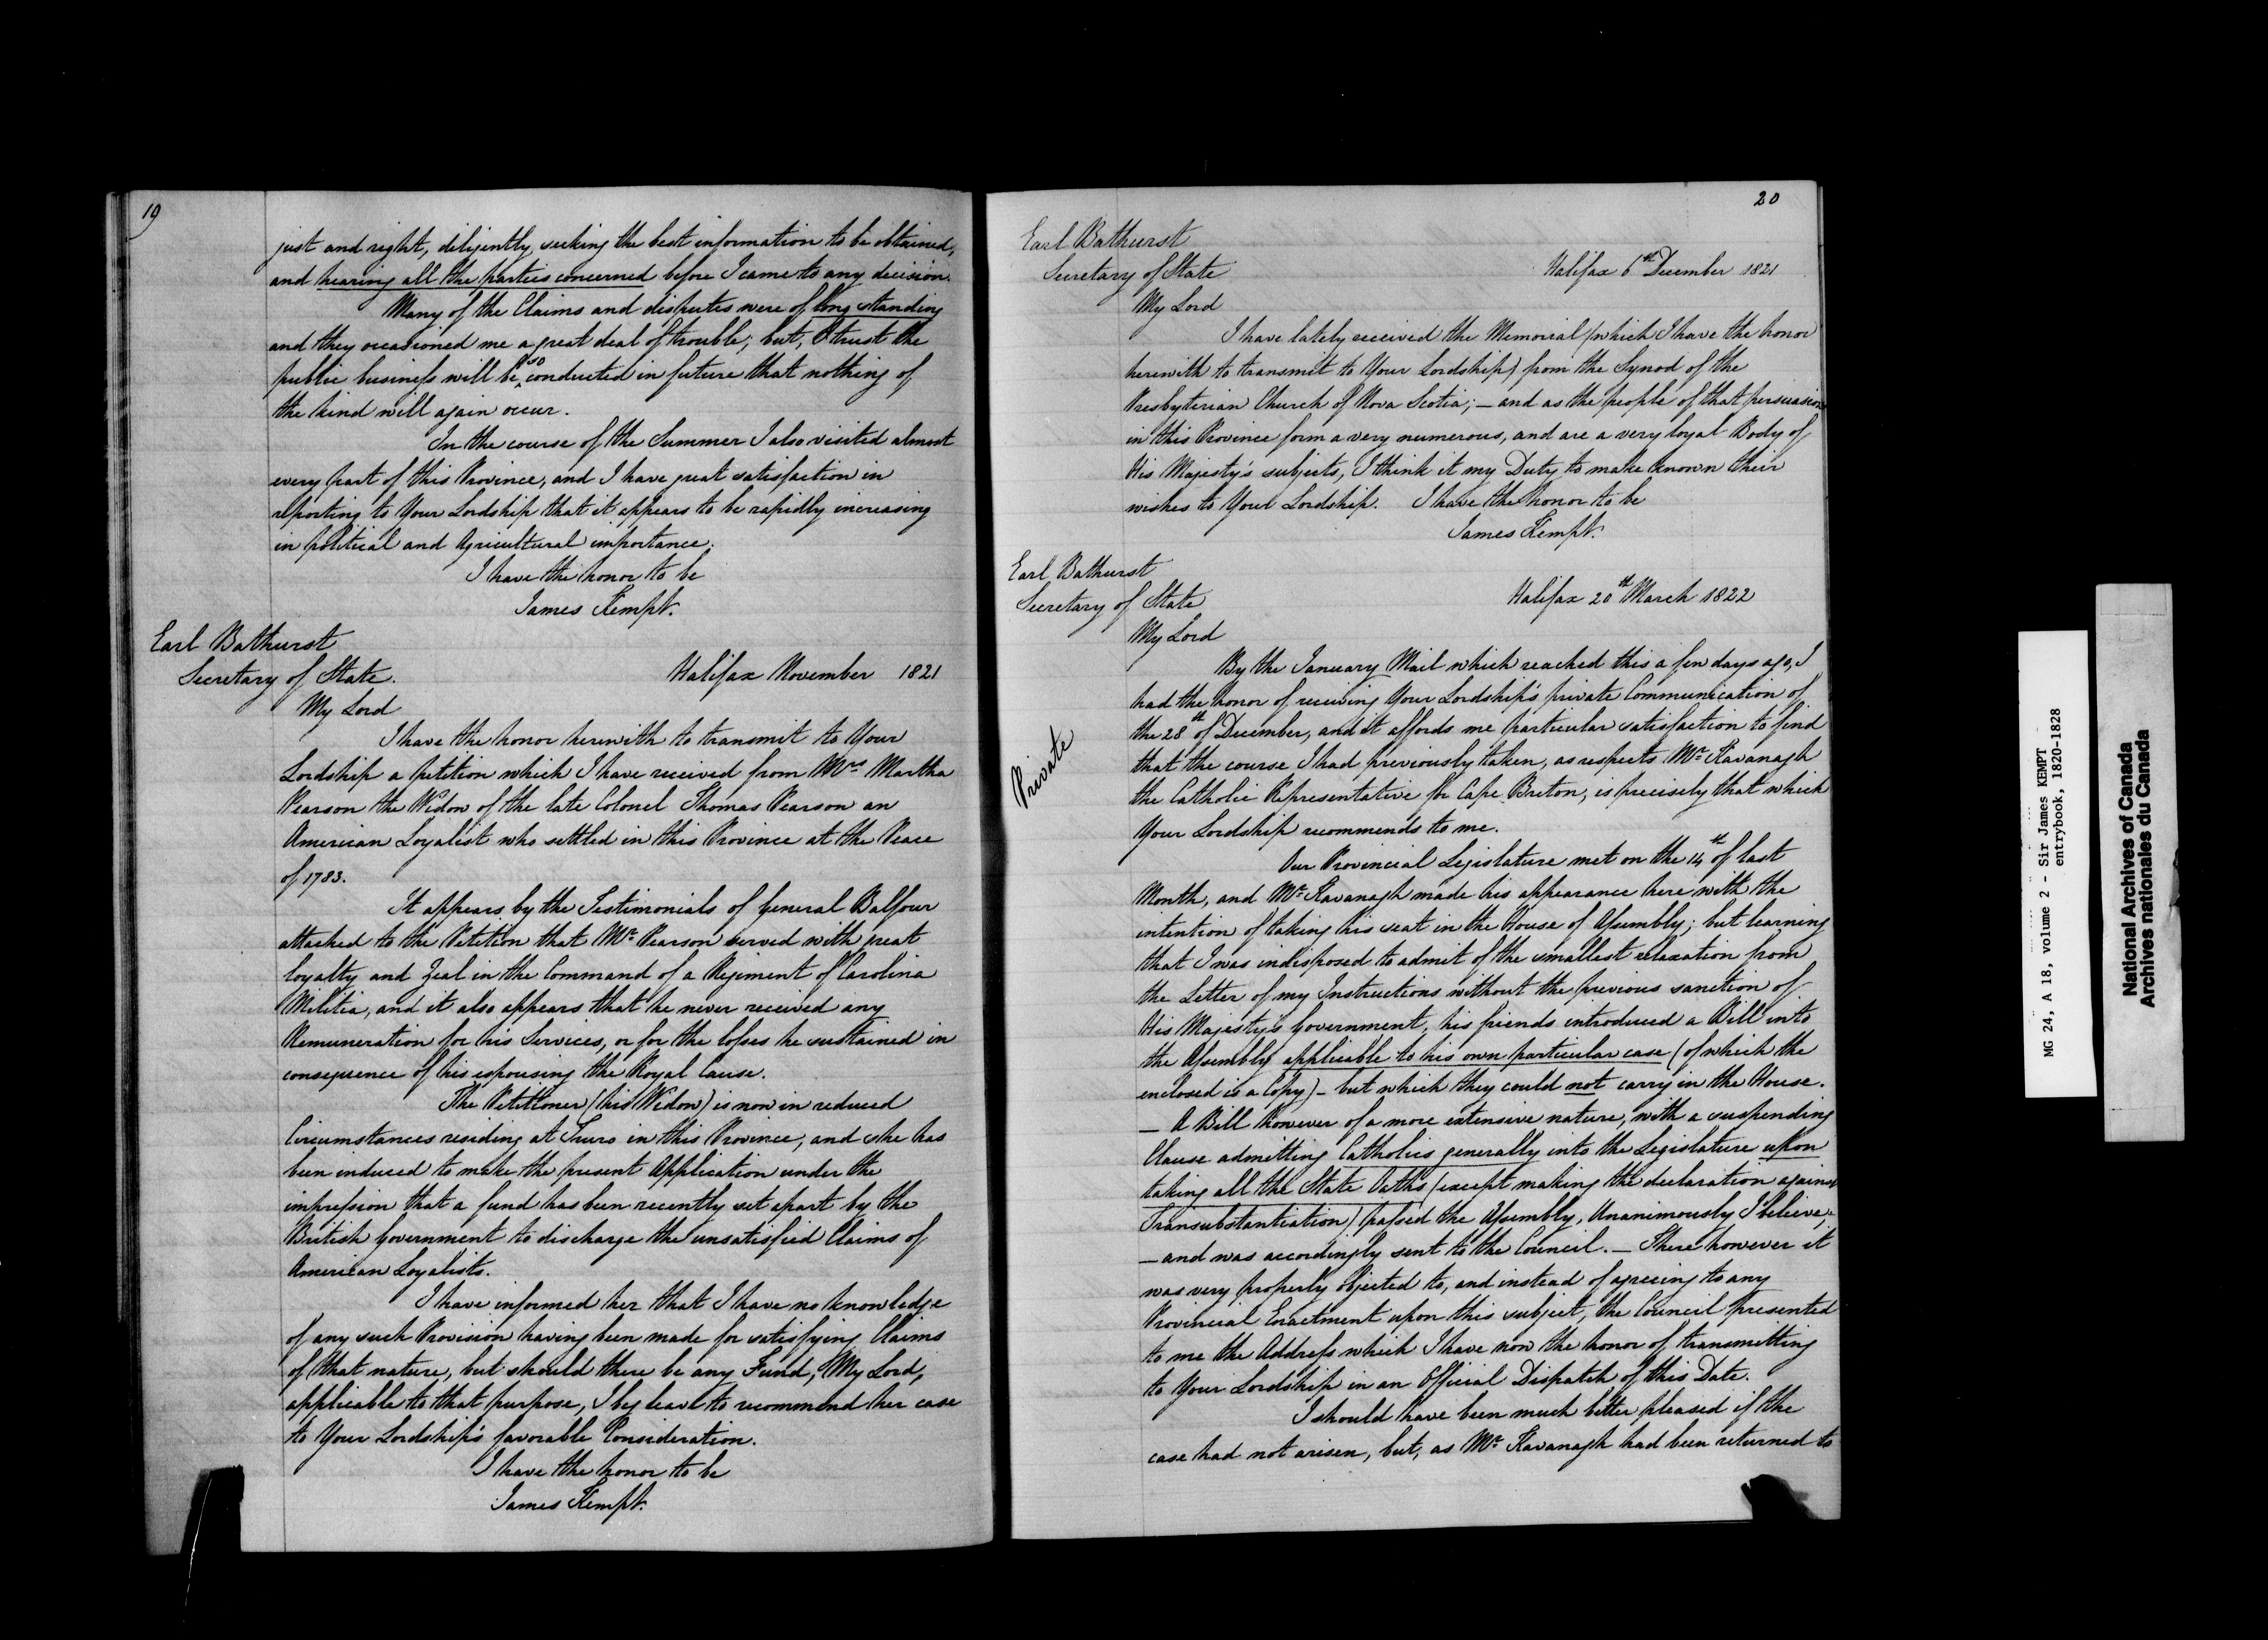 19
just and right, diligently seeking the best information to be obtained,
and hearing all the parties concerned before I came to any decision.
Many of the Claims and disputes were of long standing
and they occasioned me a great deal of trouble; but, I trust the
public business will be so conducted in future that nothing of
the kind will again occur.
In the course of the Summer I also visited almost
every part of this Province, and I have great satisfaction in
reporting to Your Lordship that it appears to be rapidly increasing
in political and Agricultural importance.
I have the honor to be
James Kempt.
Earl Bathurst
Secretary of State.
Halifax November 1821
My Lord
I have the honor herewith to transmit to Your
Lordship a petition which I have received from Mrs Martha
Pearson the Widow of the late Colonel Thomas Pearson an
American Loyalist who settled in this Province at the Peace
of 1783.
It appears by the Testimonials of General Balfour
attached to the Petition that Mr Pearson served with great
loyalty and Zeal in the Command of a Regiment of Carolina
Militia, and it also appears that he never received any
Remuneration for his Services, or for the losses he sustained in
consequence of his espousing the Royal Cause.
The Petitioner (his Widow) is now in reduced
Circumstances residing at Truro in this Province, and she has
been induced to make the present Application under the
impression that a fund has been recently set apart by the
British Government to discharge the unsatisfied Claims of
American Loyalists.
I have informed her that I have no knowledge
of any such Provision having been made for satisfying Claims
of that nature, but should there be any Fund, My Lord,
applicable to that purpose, I beg leave to recommend her case
to Your Lordship's favorable Consideration.
I have the honor to be
James Kempt.
20
Earl Bathurst
Secretary of State
Halifax 6th December 1821
My Lord
I have lately received the Memorial (which I have the honor
herewith to transmit to Your Lordship) from the Synod of the
Presbyterian Church of Nova Scotia; — and as the people of that persuasion
in this Province form a very numerous, and are a very loyal Body of
His Majesty's subjects, I think it my Duty to make known their
wishes to Your Lordship. I have the honor to be
James Kempt.
Earl Bathurst
Secretary of State
Halifax 20th March 1822
My Lord
Private
By the January Mail which reached this a few days ago, I
had the honor of receiving Your Lordship's private Communication of
the 28th of December, and it affords me particular satisfaction to find
that the course I had previously taken, as respects Mr Kavanagh
the Catholic Representative for Cape Breton, is precisely that which
Your Lordship recommends to me.
Our Provincial Legislature met on the 14th of last
Month, and Mr Kavanagh made his appearance here with the
intention of taking his seat in the House of Assembly; but learning
that I was indisposed to admit of the smallest relaxation from
the Letter of my Instructions without the previous sanction of
His Majesty's Government, his friends introduced a Bill into
the Assembly applicable to his own particular case (of which the
enclosed is a Copy) – but which they could not carry in the House.
— A Bill however of a more extensive nature, with a suspending
Clause admitting Catholics generally into the Legislature upon
taking all the State Oaths (except making the declaration against
Transubstantiation) passed the Assembly, Unanimously I believe,
— and was accordingly sent to the Council. — There however it
was very properly objected to, and instead of agreeing to any
Provincial Enactment upon this subject, the Council presented
to me the Address which I have now the honor of transmitting
to Your Lordship in an Official Dispatch of this Date.
I should have been much better pleased if the
case had not arisen, but, as Mr Kavanagh had been returned to
MG 24, A 18, volume 2 - Sir James KEMPT
entrybook, 1820-1828
National Archives of Canada
Archives nationales du Canada